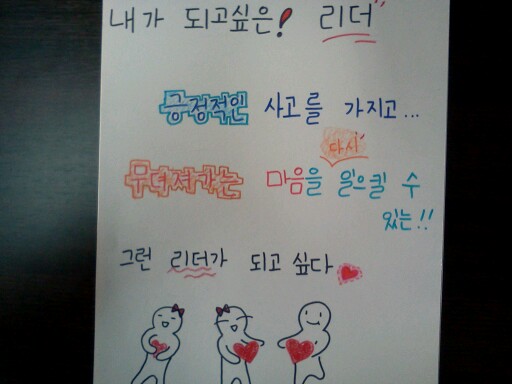 내가 되고싶은! 리더"
긍정적인 사고를 가지고...
다시
무너져가는 마음을 일으킬 수
있는!!
그런 리더가 되고 싶다